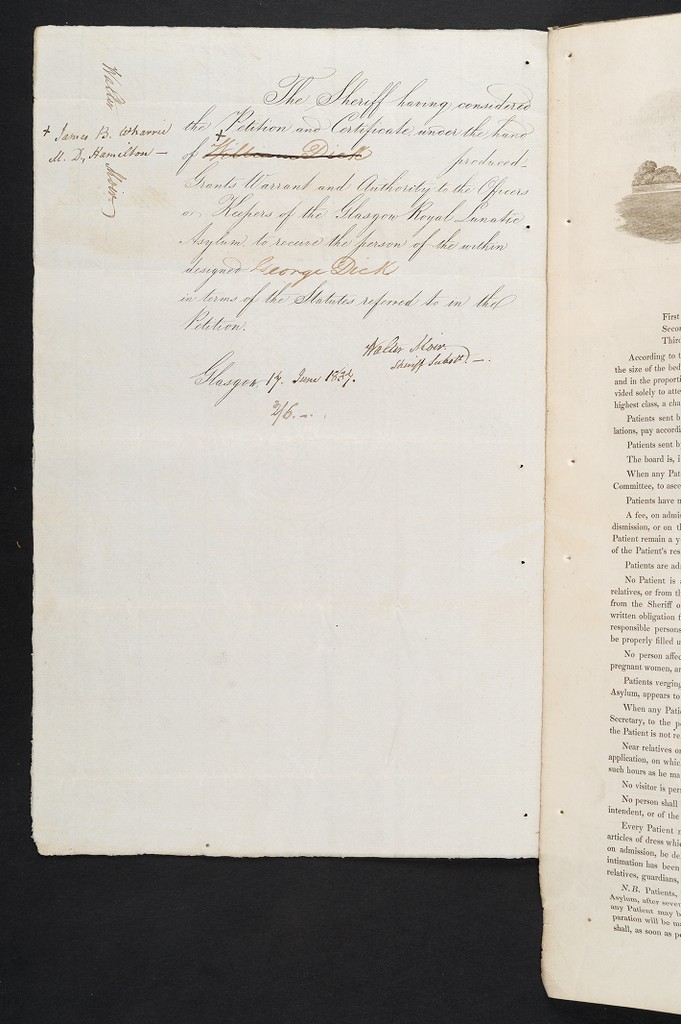 Walter Moir
+ James B. Wharrie
M. D, Hamilton —
The Sheriff having considered
the Petition and Certificate under the hand
+
of William Dick produced
Grants Warrant and Authority to the Officers
or Keepers of the Glasgow Royal Lunatic
Asylum to receive the person of the within
designed George Dick
in terms of the Statutes referred to in the
Petition.
Walter Moir.
Sheriff Subst. —.
Glasgow 17. June 1837.
2/6. —.
First
Secon
Third
According to t
the size of the bed
and in the proporti
vided solely to atte
highest class, a cha
Patients sent b
lations, pay accordi
Patients sent b
The board is, i
When any Pat
Committee, to asce
Patients have n
A fee, on admis
dismission, or on th
Patient remain a y
of the Patient's res
Patients are adm
No Patient is a
relatives, or from th
from the Sheriff o
written obligation f
responsible persons
be properly filled u
No person affec
pregnant women, an
Patients verging
Asylum, appears to
When any Patie
Secretary, to the pe
the Patient is not re
Near relatives or
application, on whic
such hours as he ma
No visitor is per
No person shall
intendent, or of the
Every Patient m
articles of dress whic
on admission, be de
intimation has been
relatives, guardians,
N. B. Patients,
Asylum, after sever
any Patient may b
paration will be ma
shall, as soon as po